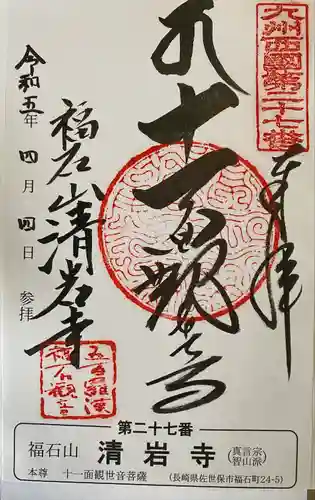 九州西國第二十七番
奉拝
十一面観世音
福石山清岩寺
令和五年 四月 四日 参拝
五百羅漢
福石観音
第二十七番
福石山 清岩寺 (真言宗智山派)
本尊 十一面観世音菩薩 (長崎県佐世保市福石町24-5)